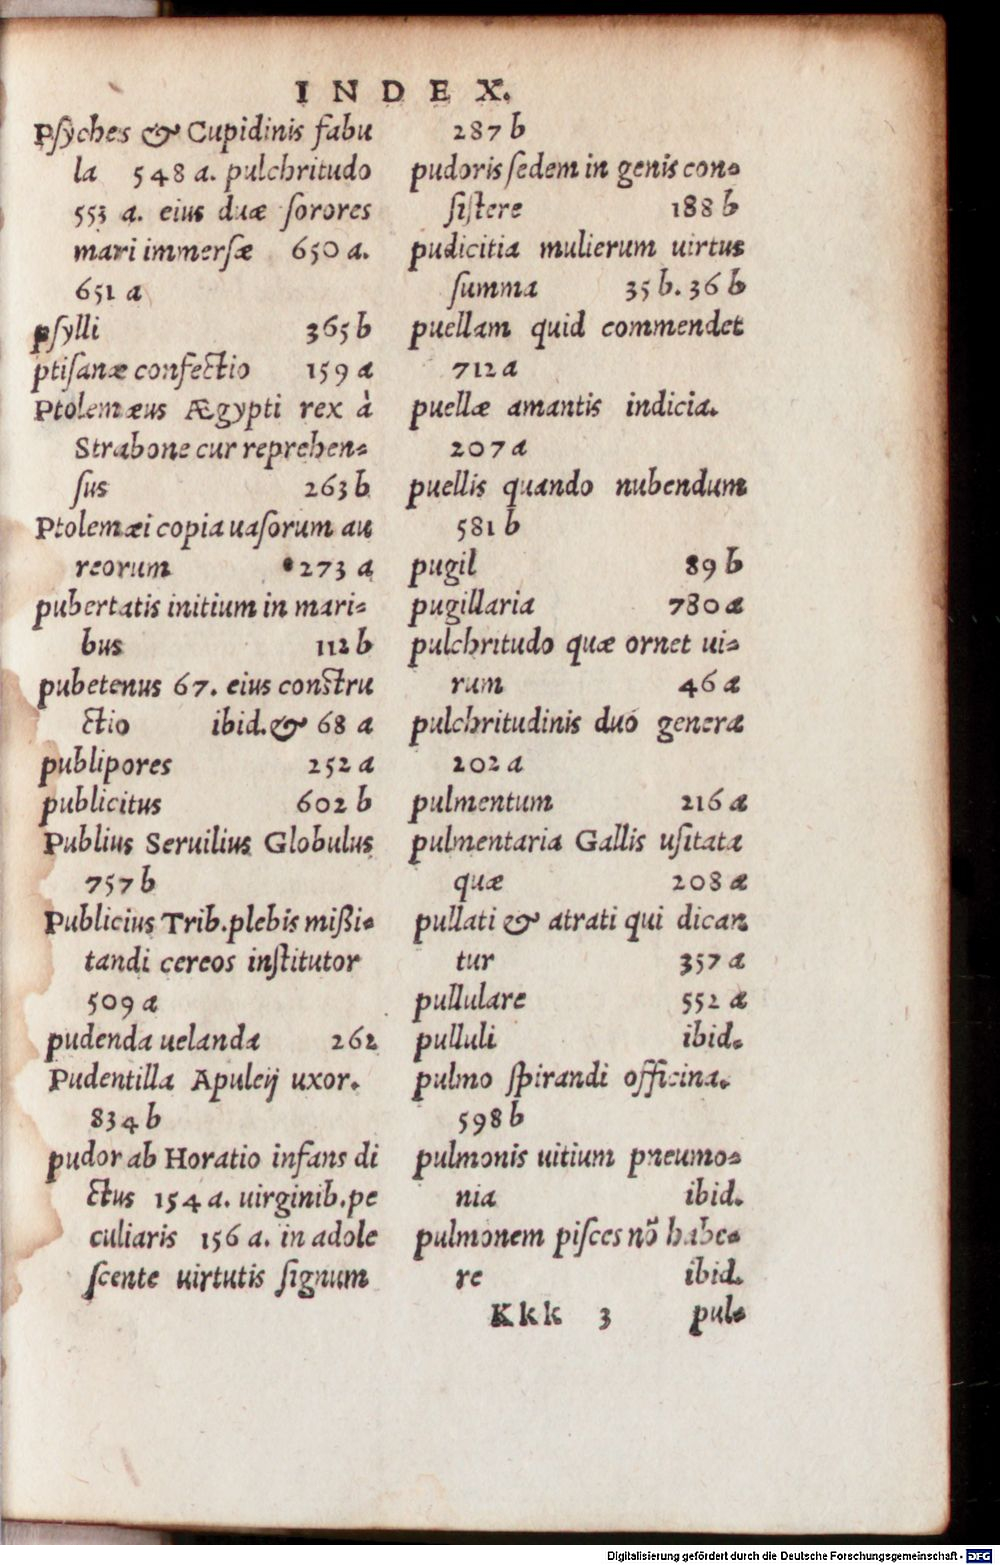 INDEX.
Psyches & Cupidinis fabu
la 548 a. pulchritudo
553 a. eius duæ ſorores
mari immerſæ 650 a.
651 a
pſylli 365 b
ptiſanæ confectio 159 a
Ptolemæus Ægypti rex à
Strabone cur reprehen-
ſus 263 b
Ptolemæi copia uaſorum au
reorum 273 a
pubertatis initium in mari-
bus 112 b
pubetenus 67. eius constru
ctio ibid. & 68 a
publipores 252 a
publicitus 602 b
Publius Seruilius Globulus
757 b
Publicius Trib. plebis mißi-
tandi cereos inſtitutor
509 a
pudenda uelanda 262
Pudentilla Apuleij uxor.
834 b
pudor ab Horatio infans di
ctus 154 a. uirginib. pe
culiaris 156 a. in adole
ſcente uirtutis ſignum
287 b
pudoris ſedem in genis con-
ſiſtere 188 b
pudicitia mulierum uirtus
ſumma 35 b. 36 b
puellam quid commendet
712 a
puellæ amantis indicia.
207 a
puellis quando nubendum
581 b
pugil 89 b
pugillaria 780 a
pulchritudo quæ ornet ui-
rum 46 a
pulchritudinis duo genera
202 a
pulmentum 216 a
pulmentaria Gallis uſitata
quæ 208 a
pullati & atrati qui dican
tur 357 a
pullulare 552 a
pulluli ibid.
pulmo ſpirandi officina.
598 b
pulmonis uitium pneumo-
nia ibid.
pulmonem piſces nõ habe-
re ibid.
Kkk 3 pul-
Digitalisierung gefördert durch die Deutsche Forschungsgemeinschaft - DFG